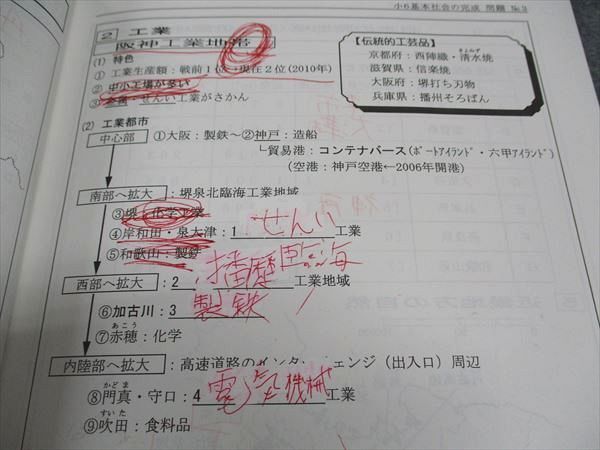 小6基本社会の完成 問題 No.3
2 工業
阪神工業地帯
(1) 特色
① 工業生産額：戦前1位→現在2位(2010年)
② 中小工場が多い
③ 金属・せんい工業がさかん
【伝統的工芸品】
京都府：西陣織・清水焼
きよみず
滋賀県：信楽焼
大阪府：堺打ち刃物
兵庫県：播州そろばん
(2) 工業都市
中心部 ①大阪：製鉄～②神戸：造船
└貿易港：コンテナバース(ポートアイランド・六甲アイランド)
(空港：神戸空港←2006年開港)
南部へ拡大：堺泉北臨海工業地域
③堺：化学工業
④岸和田・泉大津：1 せんい
⑤和歌山：製鉄
西部へ拡大：2 播歴臨海 工業地域
⑥加古川：3 製鉄
あこう
⑦赤穂：化学
内陸部へ拡大：高速道路のインターチェンジ（出入口）周辺
かどま
⑧門真・守口：4 電気機械 工業
すいた
⑨吹田：食料品